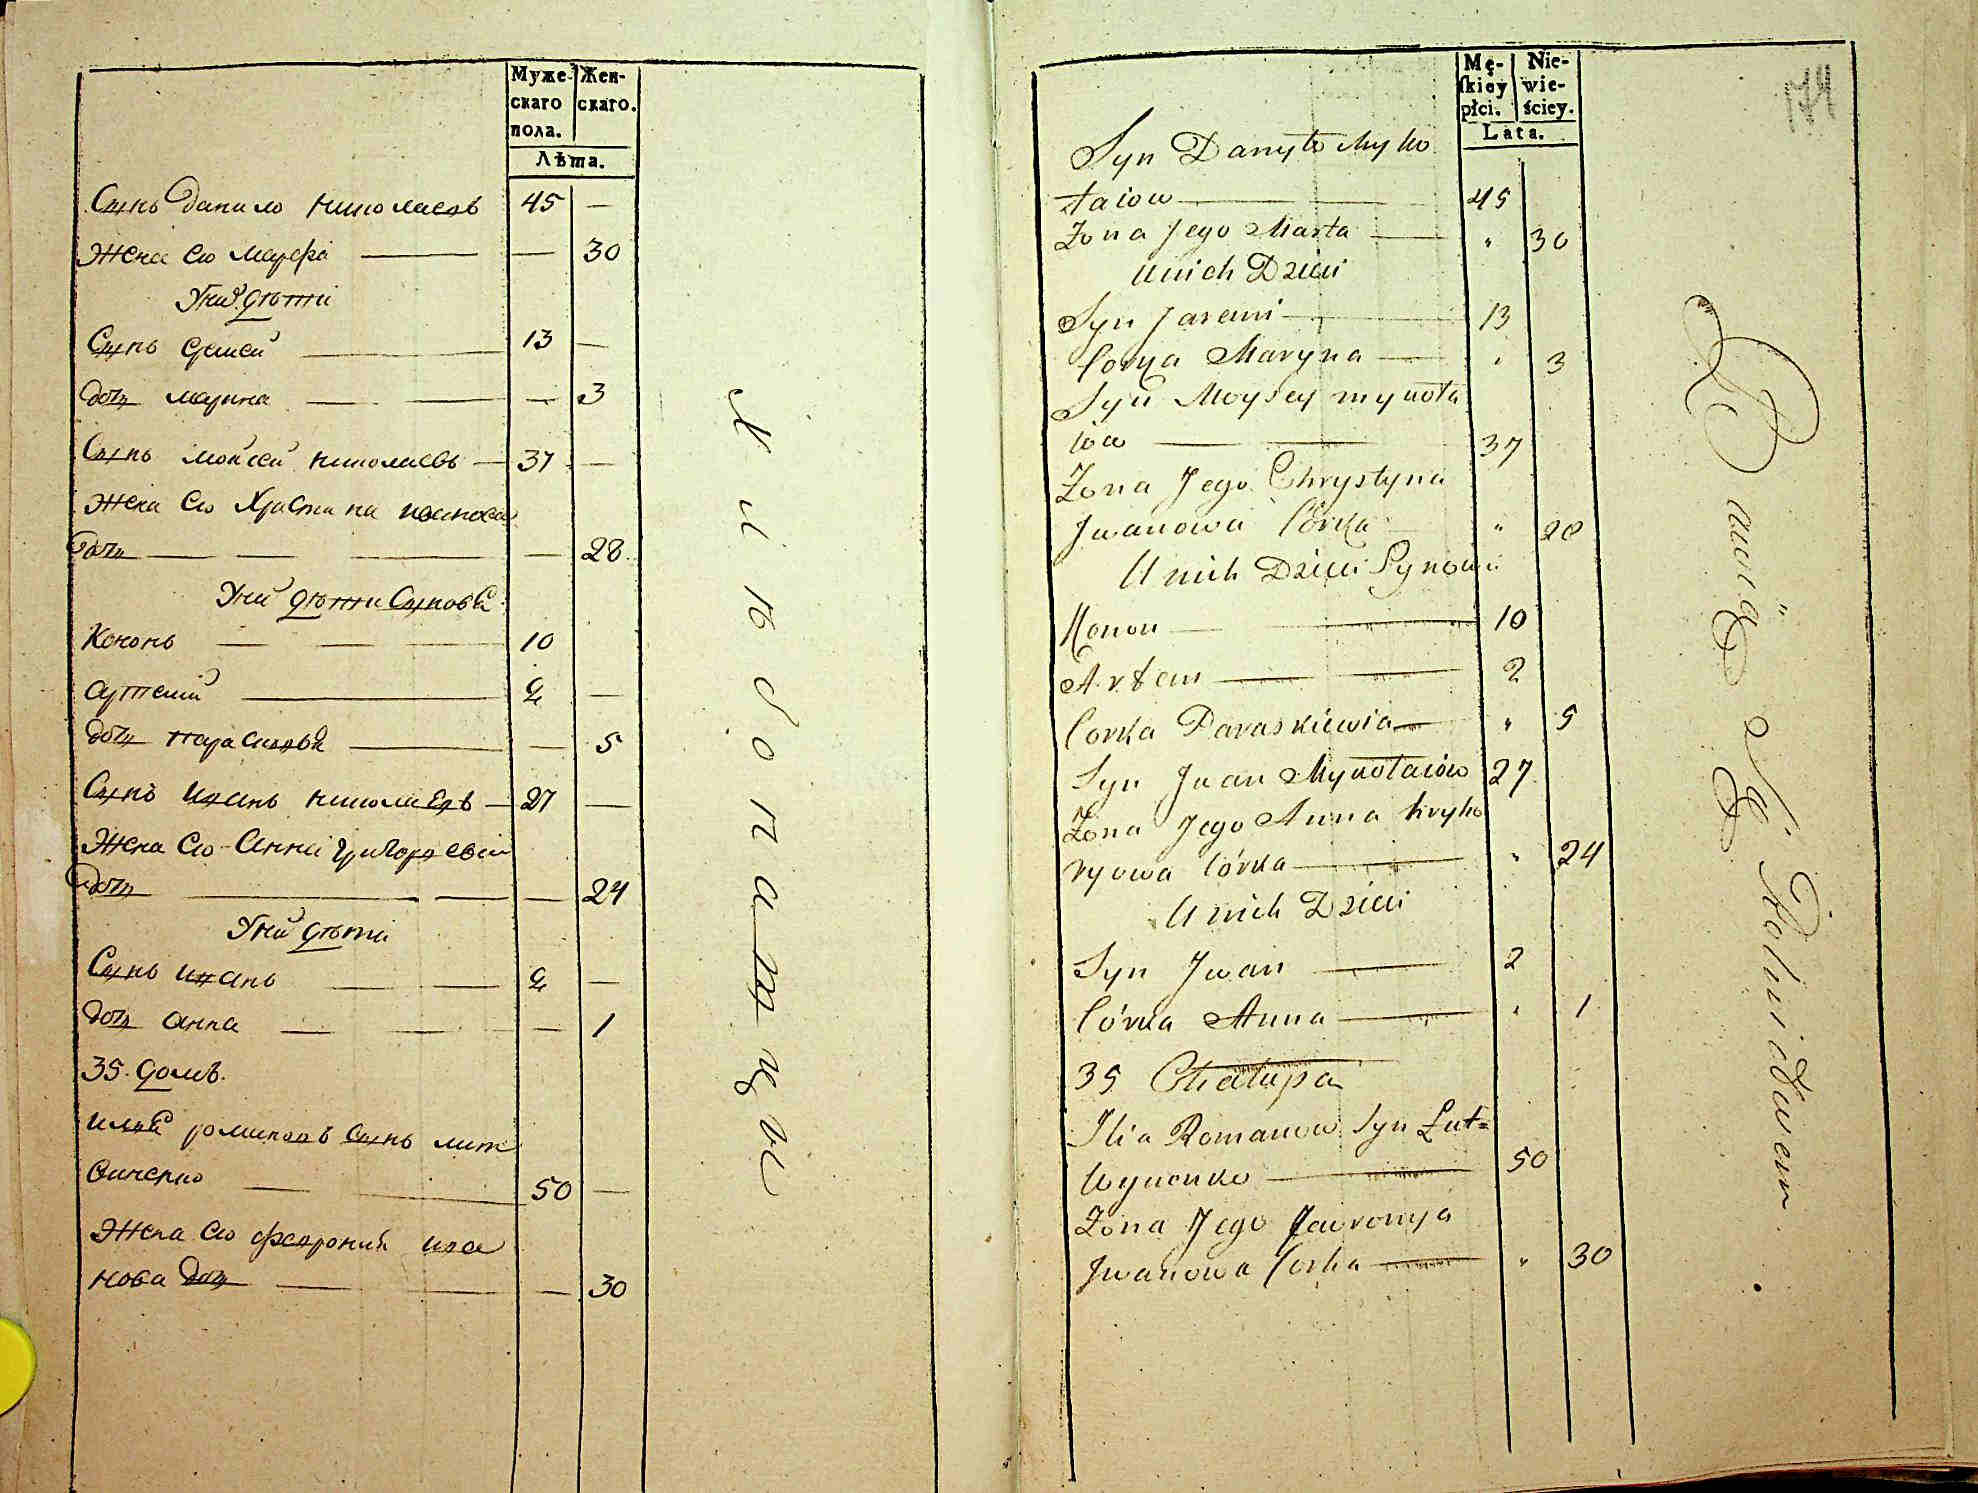 Муже- Жен-
скаго скаго.
пола.
Лѣта.
Сынъ Данило Николаевъ 45 —
Жена Его Марфа — 30
У них дѣти
Сынъ 13 —
дочь марина — 3
Сынъ Мойсей Николаевъ 37 —
Жена Его Христина иванова
дочь — 28
У них дѣти Сыновя
Кононъ 10
артемій 2 —
дочь параскевія — 5
Сынъ иванъ николаевъ 27 —
Жена Его Анна григорова
дочь — 24
У них дѣти
Сынъ иванъ 2 —
дочь анна — 1
35. домъ.
илия романовъ Сынъ лит
виненко 50 —
Жена Его феврония ива
нова дочь — 30
Mę- Nie-
skiey wie-
płci. ściey.
Lata.
174
Syn Danyło Myko
łaiow 45
Żona Jego Marta " 30
U nich Dzieci
Syn Jaremi 13
Corka Maryna " 3
Syn Moysey mykoła
iow 37
Żona Jego Chrystyna
Jwanowa Córka " 28
U nich Dzieci Synowie
Konon 10
Artem 2
Corka Paraskiewia " 5
Syn Jwan Mykołaiow 27
Żona Jego Anna hryho
ryowa Córka " 24
U nich Dzieci
Syn Jwan 2
Córka Anna " 1
35 Chałupa
Ilia Romanow Syn Łut=
wynenko 50
Żona Jego Jawronija
Jwanowa Corka " 30